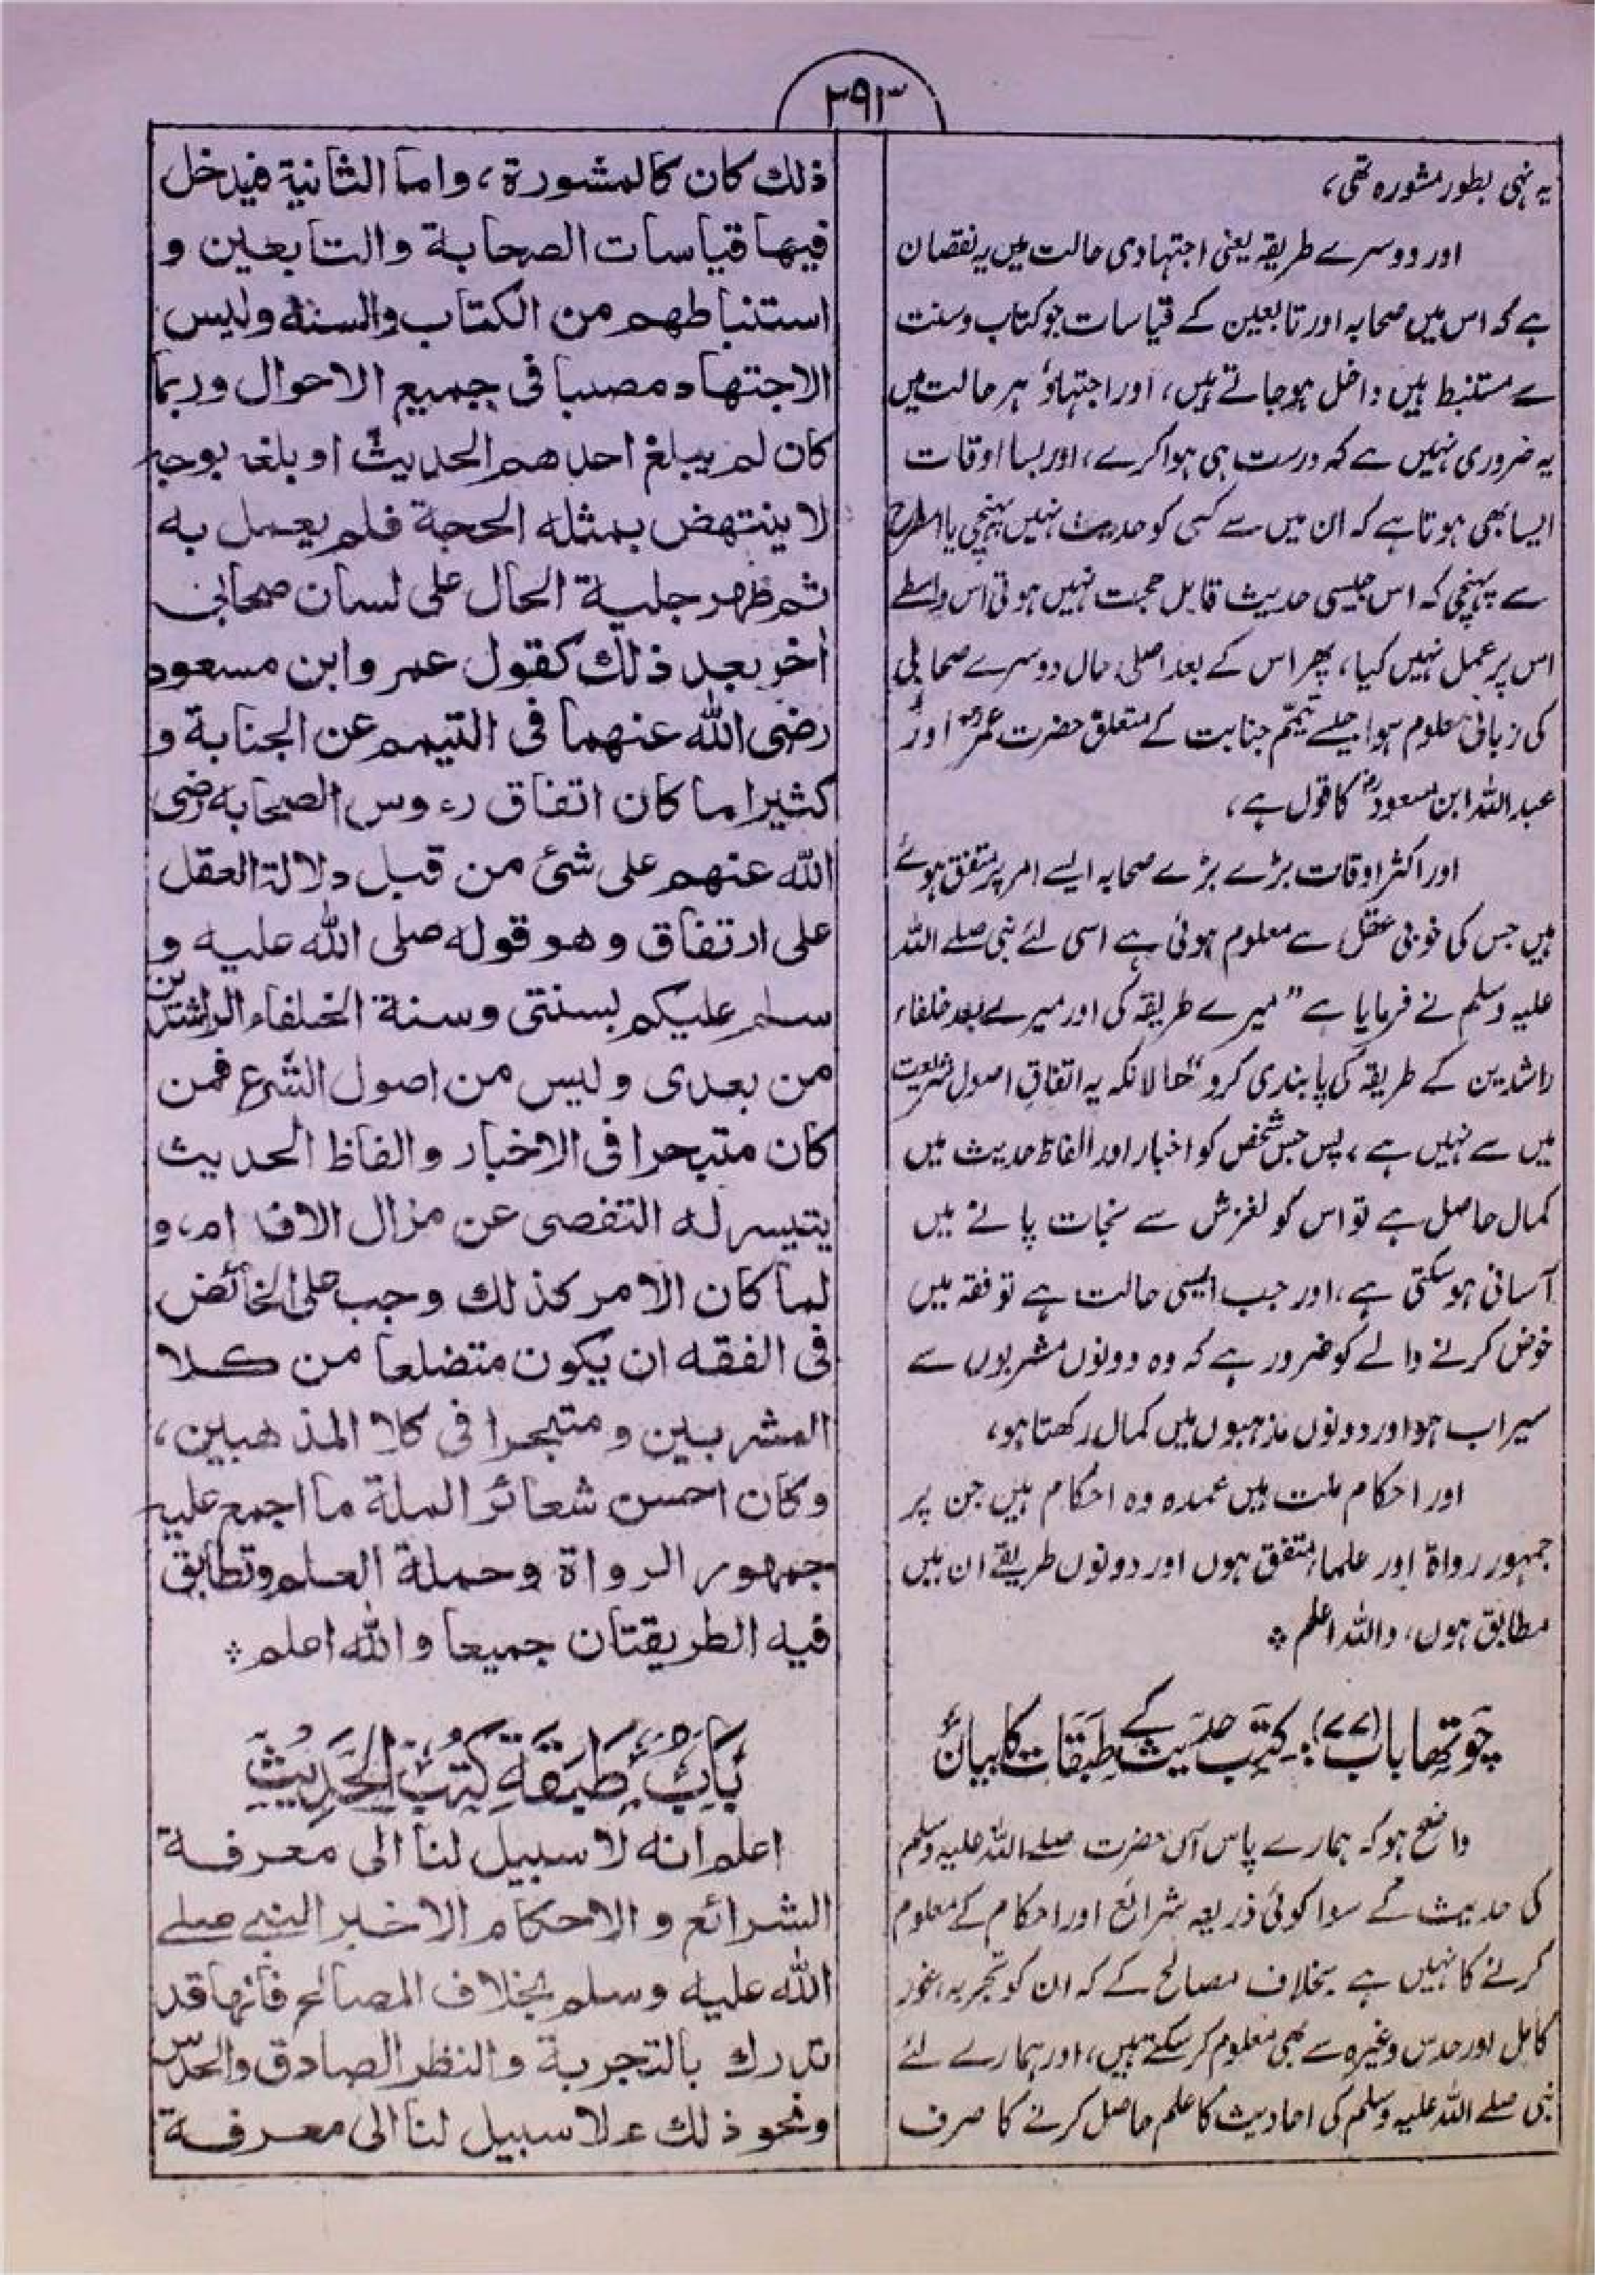 ۲۹۳
یہ نہی بطور مشورہ تھی،
اور دوسرے طریقہ یعنی اجتہادی حالت میں یہ نقصان
ہے کہ اس میں صحابہ اور تابعین کے قیاسات جو کتاب و سنت
سے مستنبط ہیں داخل ہو جاتے ہیں، اور اجتہاد ہر حالت میں
یہ ضروری نہیں ہے کہ درست ہی ہوا کرے، اور بسا اوقات
ایسا بھی ہوتا ہے کہ ان میں سے کسی کو حدیث نہیں پہنچی یا اسطرح
سے پہنچی کہ اس جیسی حدیث قابل حجت نہیں ہوتی اس واسطے
اس پر عمل نہیں کیا، پھر اس کے بعد اصلی حال دوسرے صحابی
کی زبانی معلوم ہوا جیسے تیمّم جنابت کے متعلق حضرت عمرؓ اور
عبد اللہ ابن مسعودؓ کا قول ہے،
اور اکثر اوقات بڑے بڑے صحابہ ایسے امر پر متفق ہوئے
ہیں جس کی خوبی عقل سے معلوم ہوئی ہے اسی لئے نبی صلے اللہ
علیہ وسلم نے فرمایا ہے ”میرے طریقہ کی اور میرے بعد خلفاء
راشدین کے طریقہ کی پابندی کرو“ حالانکہ یہ اتفاق اصول شریعت
میں سے نہیں ہے، پس جس شخص کو اخبار اور الفاظ حدیث میں
کمال حاصل ہے تو اس کو لغزش سے نجات پانے میں
آسانی ہو سکتی ہے، اور جب ایسی حالت ہے تو فقہ میں
خوض کرنے والے کو ضرور ہے کہ وہ دونوں مشربوں سے
سیراب ہو اور دونوں مذہبوں میں کمال رکھتا ہو،
اور احکام ملت میں عمدہ وہ احکام ہیں جن پر
جمہور رواۃ اور علماء متفق ہوں اور دونوں طریقے ان میں
مطابق ہوں، واللہ اعلم ؞
چوتھا باب (۷۷): کتب حدیث کے طبقات کا بیان
واضح ہو کہ ہمارے پاس آں حضرت صلے اللہ علیہ وسلم
کی حدیث کے سوا کوئی ذریعہ شرائع اور احکام کے معلوم
کرنے کا نہیں ہے بخلاف مصالح کے کہ ان کو تجربہ، غور
کامل اور حدس وغیرہ سے بھی معلوم کر سکتے ہیں، اور ہمارے لئے
نبی صلے اللہ علیہ وسلم کی احادیث کا علم حاصل کرنے کا صرف
ذلك كان كالمشورة، واما الثانية فيدخل
فيها قياسات الصحابة والتابعين و
استنباطهم من الكتاب والسنة وليس
الاجتهاد مصيبا فى جميع الاحوال وربما
كان لم يبلغ احدهم الحديث او بلغه بوجه
لا ينتهض بمثله الحجة فلم يعمل به
ثم ظهر جلية الحال على لسان صحابى
أخر بعد ذلك كقول عمر وابن مسعود
رضى الله عنهما فى التيمم عن الجنابة و
كثيرا ما كان اتفاق رءوس الصحابه رضى
الله عنهم على شئ من قبل دلالة العقل
على ارتفاق وهو قوله صلى الله عليه و
سلم عليكم بسنتى وسنة الخلفاء الراشدين
من بعدى وليس من اصول الشرع فمن
كان متبحرا فى الاخبار والفاظ الحديث
يتيسر له التفصى عن مزال الاقدام، و
لما كان الامر كذلك وجب على الخائض
فى الفقه ان يكون متضلعا من كلا
المشربين ومتبحرا فى كلا المذهبين،
وكان احسن شعائر الملة ما اجمع عليه
جمهور الرواة وحملة العلم وتطابق
فيه الطريقتان جميعا والله اعلم ؞
بَابُ طَبَقَةِ كُتُبِ الحَدِيْثِ
اعلم انه لا سبيل لنا الى معرفة
الشرائع والاحكام الا خبر النبى صلے
الله عليه وسلم بخلاف المصالح فانها قد
تدرك بالتجربة والنظر الصادق والحدس
ونحو ذلك ولا سبيل لنا الى معرفة